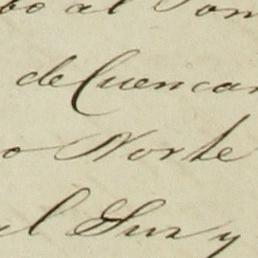 bo al Pon
de Cuencam
o Norte
el Sur y